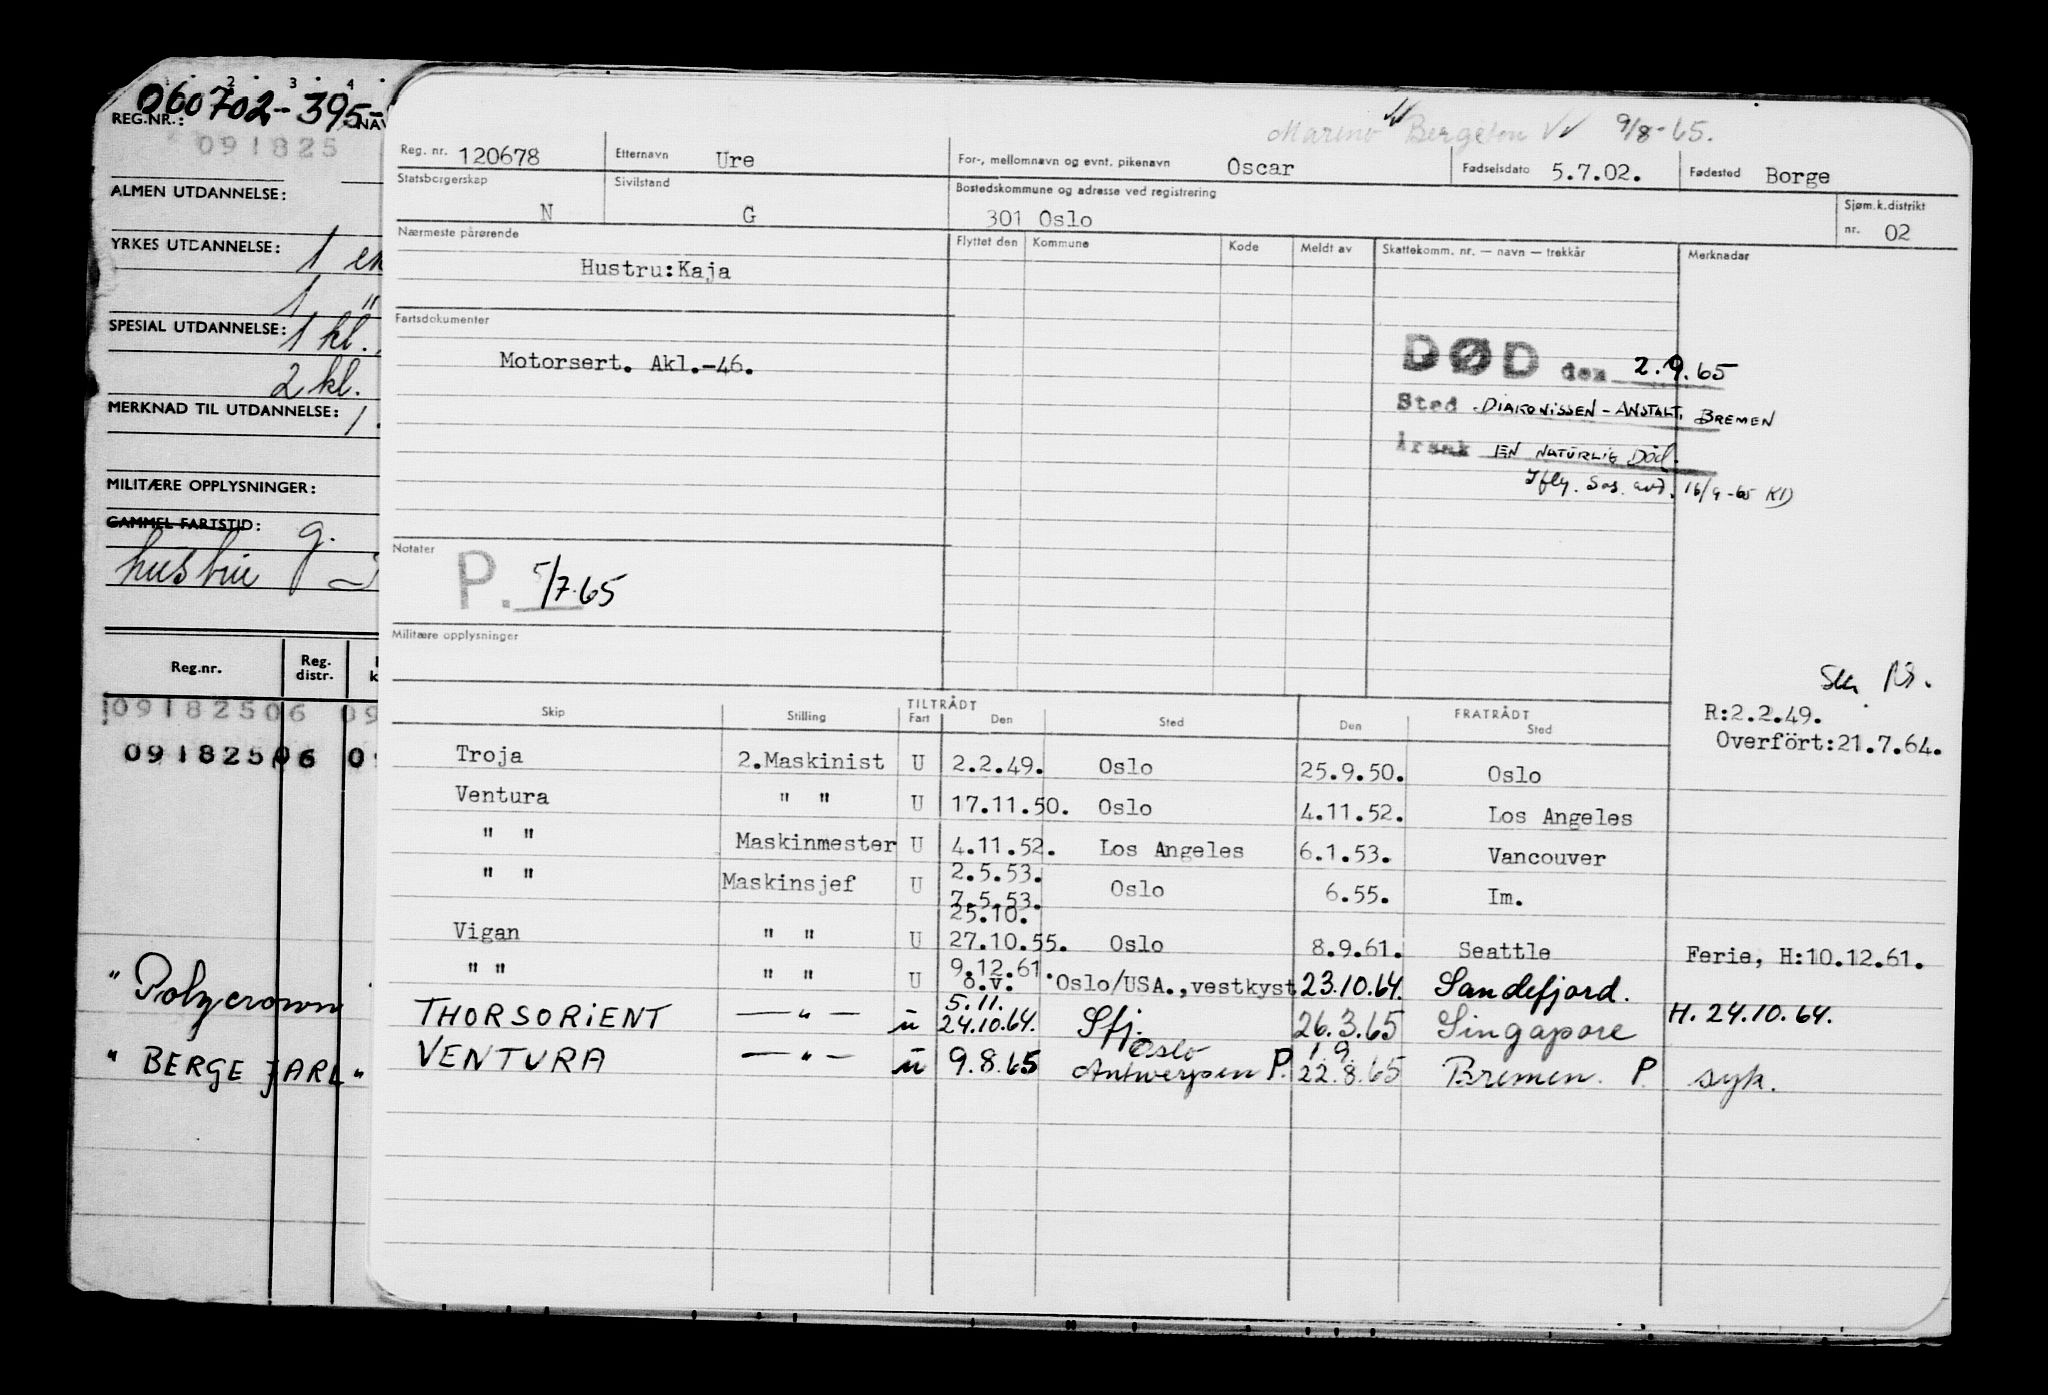 1 2 3 4
060702-395-
REG.NR.: NAV
091825
ALMEN UTDANNELSE:
YRKES UTDANNELSE: 1 en
1 "
SPESIAL UTDANNELSE: 1 kl.
2 kl.
MERKNAD TIL UTDANNELSE: 1
MILITÆRE OPPLYSNINGER:
GAMMEL FARTSTID: g.
hustru
Reg.nr. Reg. distr. k
09182506 09
09182506 0
"Polycrown
"BERGE JARL"
Bergeton 9/8-65.
Reg. nr. 120678 Etternavn Ure For-, mellomnavn og evnt. pikenavn Oscar Fødselsdato 5.7.02. Fødested Borge
Statsborgerskap N Sivilstand G Bostedskommune og adresse ved registrering 301 Oslo Sjøm.k.distrikt nr. 02
Nærmeste pårørende Flyttet den Kommune Kode Meldt av Skattekomm. nr. — navn — trekkår Merknader
Hustru:Kaja
Fartsdokumenter
Motorsert. Akl.-46.
DØD den 2.9.65
Sted DIAKONISSEN-ANSTALT, BREMEN
Årsak EN NATURLIG Död.
Iflg. Sos. avd. 16/9-65 KD
Notater
P. 5/7.65
Militære opplysninger
R:2.2.49.
Overfört:21.7.64.
TILTRÅDT FRATRÅDT
Skip Stilling Fart Den Sted Den Sted
Troja 2.Maskinist U 2.2.49. Oslo 25.9.50. Oslo
Ventura " " U 17.11.50. Oslo 4.11.52. Los Angeles
" " Maskinmester U 4.11.52. Los Angeles 6.1.53. Vancouver
" " Maskinsjef U 2.5.53. 7.5.53. Oslo 6.55. Im.
Vigan " " U 25.10. 27.10.55. Oslo 8.9.61. Seattle Ferie, H:10.12.61.
" " " " U 9.12.61. o.v. Oslo/USA.,vestkyst 23.10.64. Sandefjord.
THORSORIENT — " — ü 5.11. 24.10.64. Sfj. 26.3.65 Singapore H. 24.10.64.
VENTURA — " — ü 9.8.65 Oslo Antwerpen P. 1.9. 22.8.65 Bremen. P. syk.